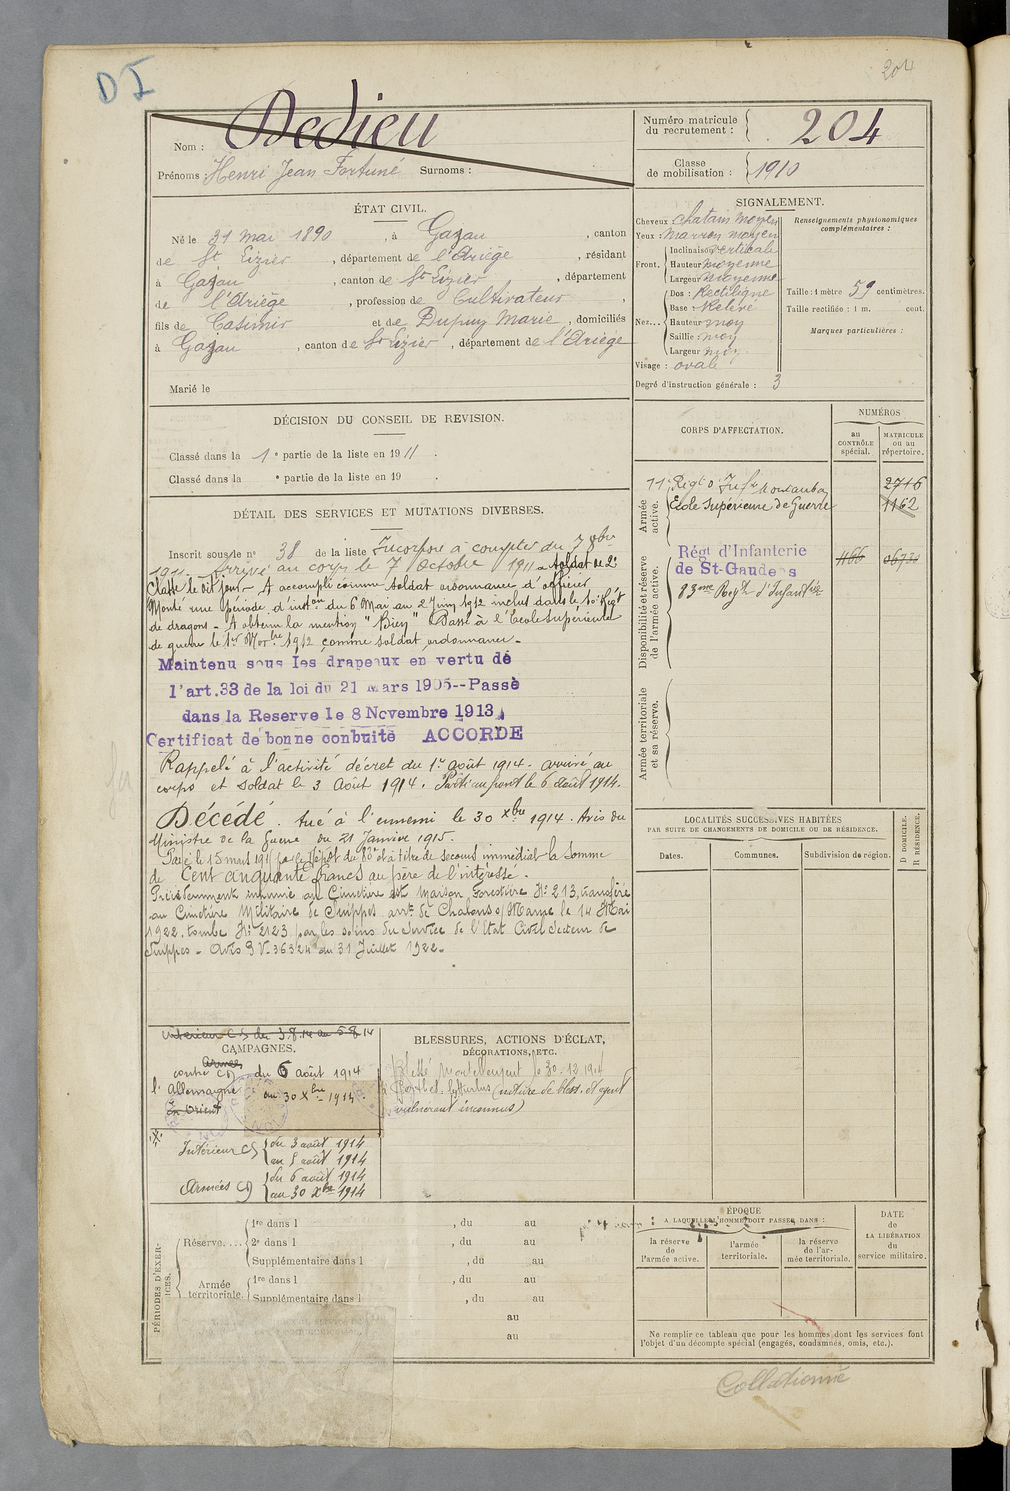 D I
204
Nom : Dedieu
Prénoms : Henri Jean Fortuné Surnoms :
Numéro matricule du recrutement : 204
Classe de mobilisation : 1910
ÉTAT CIVIL.
Né le 31 mai 1890, à Gajan, canton
de St Lizier, département de l'Ariège, résidant
à Gajan, canton de St Lizier, département
de l'Ariège, profession de Cultivateur,
fils de Casimir et de Dupuy Marie, domiciliés
à Gajan, canton de St Lizier, département de l'Ariège
Marié le
SIGNALEMENT.
Cheveux chatain moyen
Yeux : marron moyen
Front. Inclinaison verticale
Hauteur moyenne
Largeur moyenne
Nez... Dos : Rectiligne
Base : Relevé
Hauteur moy
Saillie : moy
Largeur moy
Visage : ovale
Degré d'instruction générale : 3
Renseignements physionomiques complémentaires :
Taille : 1 mètre 59 centimètres.
Taille rectifiée : 1 m. cent.
Marques particulières :
DÉCISION DU CONSEIL DE REVISION.
Classé dans la 1e partie de la liste en 1911.
Classé dans la e partie de la liste en 19 .
DÉTAIL DES SERVICES ET MUTATIONS DIVERSES.
Inscrit sous le n° 38 de la liste Incorporé à compter du 7 8bre
1911. Arrivé au corps le 7 octobre 1911 Soldat de 2e
Classe le dit jour - A accompli comme soldat ordonnance d'officier
Monté une période d'inston du 6 Mai au 2 Juin 1912 inclus dans le 10e Regt
de dragons - A obtenu la mention "Bien" Passé à l'Ecole Supérieure
de guerre le 1er Novbre 1912 comme soldat ordonnance -
Maintenu sous les drapeaux en vertu de
l'art.33 de la loi du 21 Mars 1905--Passé
dans la Reserve le 8 Novembre 1913
Certificat de bonne conbuite ACCORDE
Rappelé à l'activité décret du 1er août 1914. arrivé au
corps et soldat le 3 Août 1914. Parti au front le 6 août 1914.
Décédé. tué à l'ennemi le 30 Xbre 1914. Avis du
Ministre de la Guerre du 21 Janvier 1915.
Payé le 15 mars 191 par le Dépôt du 83e et à titre de secours immédiat la somme
de Cent cinquante francs au père de l'intéressé.
Précédemment inhumé au Cimetière est Maison Forestière No 213, transféré
au Cimetière Militaire de Suippes arrt de Chalons s/Marne le 14 Mai
1922, tombe No 2123 par les soins du Service de l'Etat Civil Secteur de
Suippes - Avis P.V. 36324 du 31 Juillet 1922.
CORPS D'AFFECTATION.
NUMÉROS
au CONTRÔLE spécial.
MATRICULE ou au répertoire.
Armée active.
11e Regt d'Infie Montauban 2716
Ecole Supérieure de Guerre 1162
Disponibilité et réserve de l'armée active.
Régt d'Infanterie
de St-Gaudens
83me Regt d'Infanterie
Armée territoriale et sa réserve.
LOCALITÉS SUCCESSIVES HABITÉES
PAR SUITE DE CHANGEMENTS DE DOMICILE OU DE RÉSIDENCE.
Dates.
Communes.
Subdivision de région.
D DOMICILE.
R RÉSIDENCE.
Intérieur CS du 3.8.14 au 5 8 14
CAMPAGNES.
Armées
contre CD du 6 août 1914
l'Allemagne au 30 Xbre 1914.
En Orient
Intérieur CS du 3 août 1914
au 5 août 1914
Armées CD du 6 août 1914
au 30 Xbre 1914
BLESSURES, ACTIONS D'ÉCLAT,
DÉCORATIONS, ETC.
Blessé Mortellement le 30.12.1914
à Perthes-les-Hurlus (nature de bless. et agent
vulnérant inconnus)
PÉRIODES D'EXERCICES.
Réserve....
1re dans l , du au
2e dans l , du au
Supplémentaire dans l , du au
Armée territoriale.
1re dans l , du au
Supplémentaire dans l , du au
au
au
ÉPOQUE
A LAQUELLE L'HOMME DOIT PASSER DANS :
la réserve de l'armée active.
l'armée territoriale.
la réserve de l'armée territoriale.
DATE
de
LA LIBÉRATION
du
service militaire.
Ne remplir ce tableau que pour les hommes dont les services font
l'objet d'un décompte spécial (engagés, condamnés, omis, etc.).
Collationné